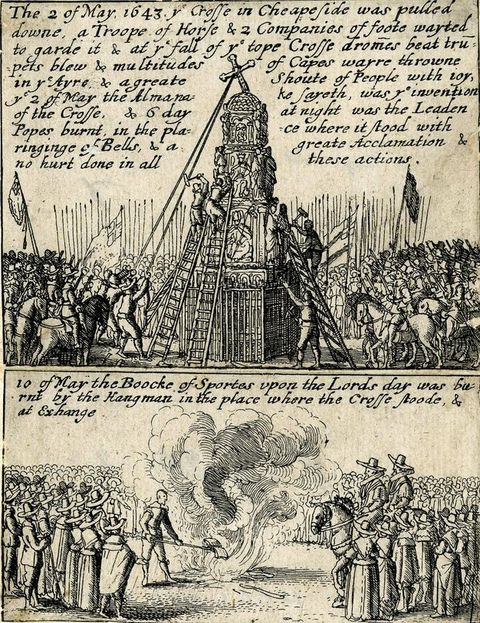 The 2 of May. 1643. yᵉ Crosse in Cheapeside was pulled
downe, a Troope of Horse & 2 Companies of foote wayted
to garde it & at yᵉ fall of yᵉ tope Crosse dromes beat tru-
pets blew & multitudes of Capes wayre throwne
in yᵉ Ayre, & a greate Shoute of People with ioy,
yᵉ 2 of May the Almana ke sayeth, was yᵉ invention
of the Crosse, & 6 day at night was the Leaden
Popes burnt, in the pla- ce where it stood with
ringinge of Bells, & a greate Acclamation &
no hurt done in all these actions.
10 of May the Boocke of Sportes vpon the Lords day was bu-
rnt by the Hangman in the place where the Crosse stoode, &
at Exhange